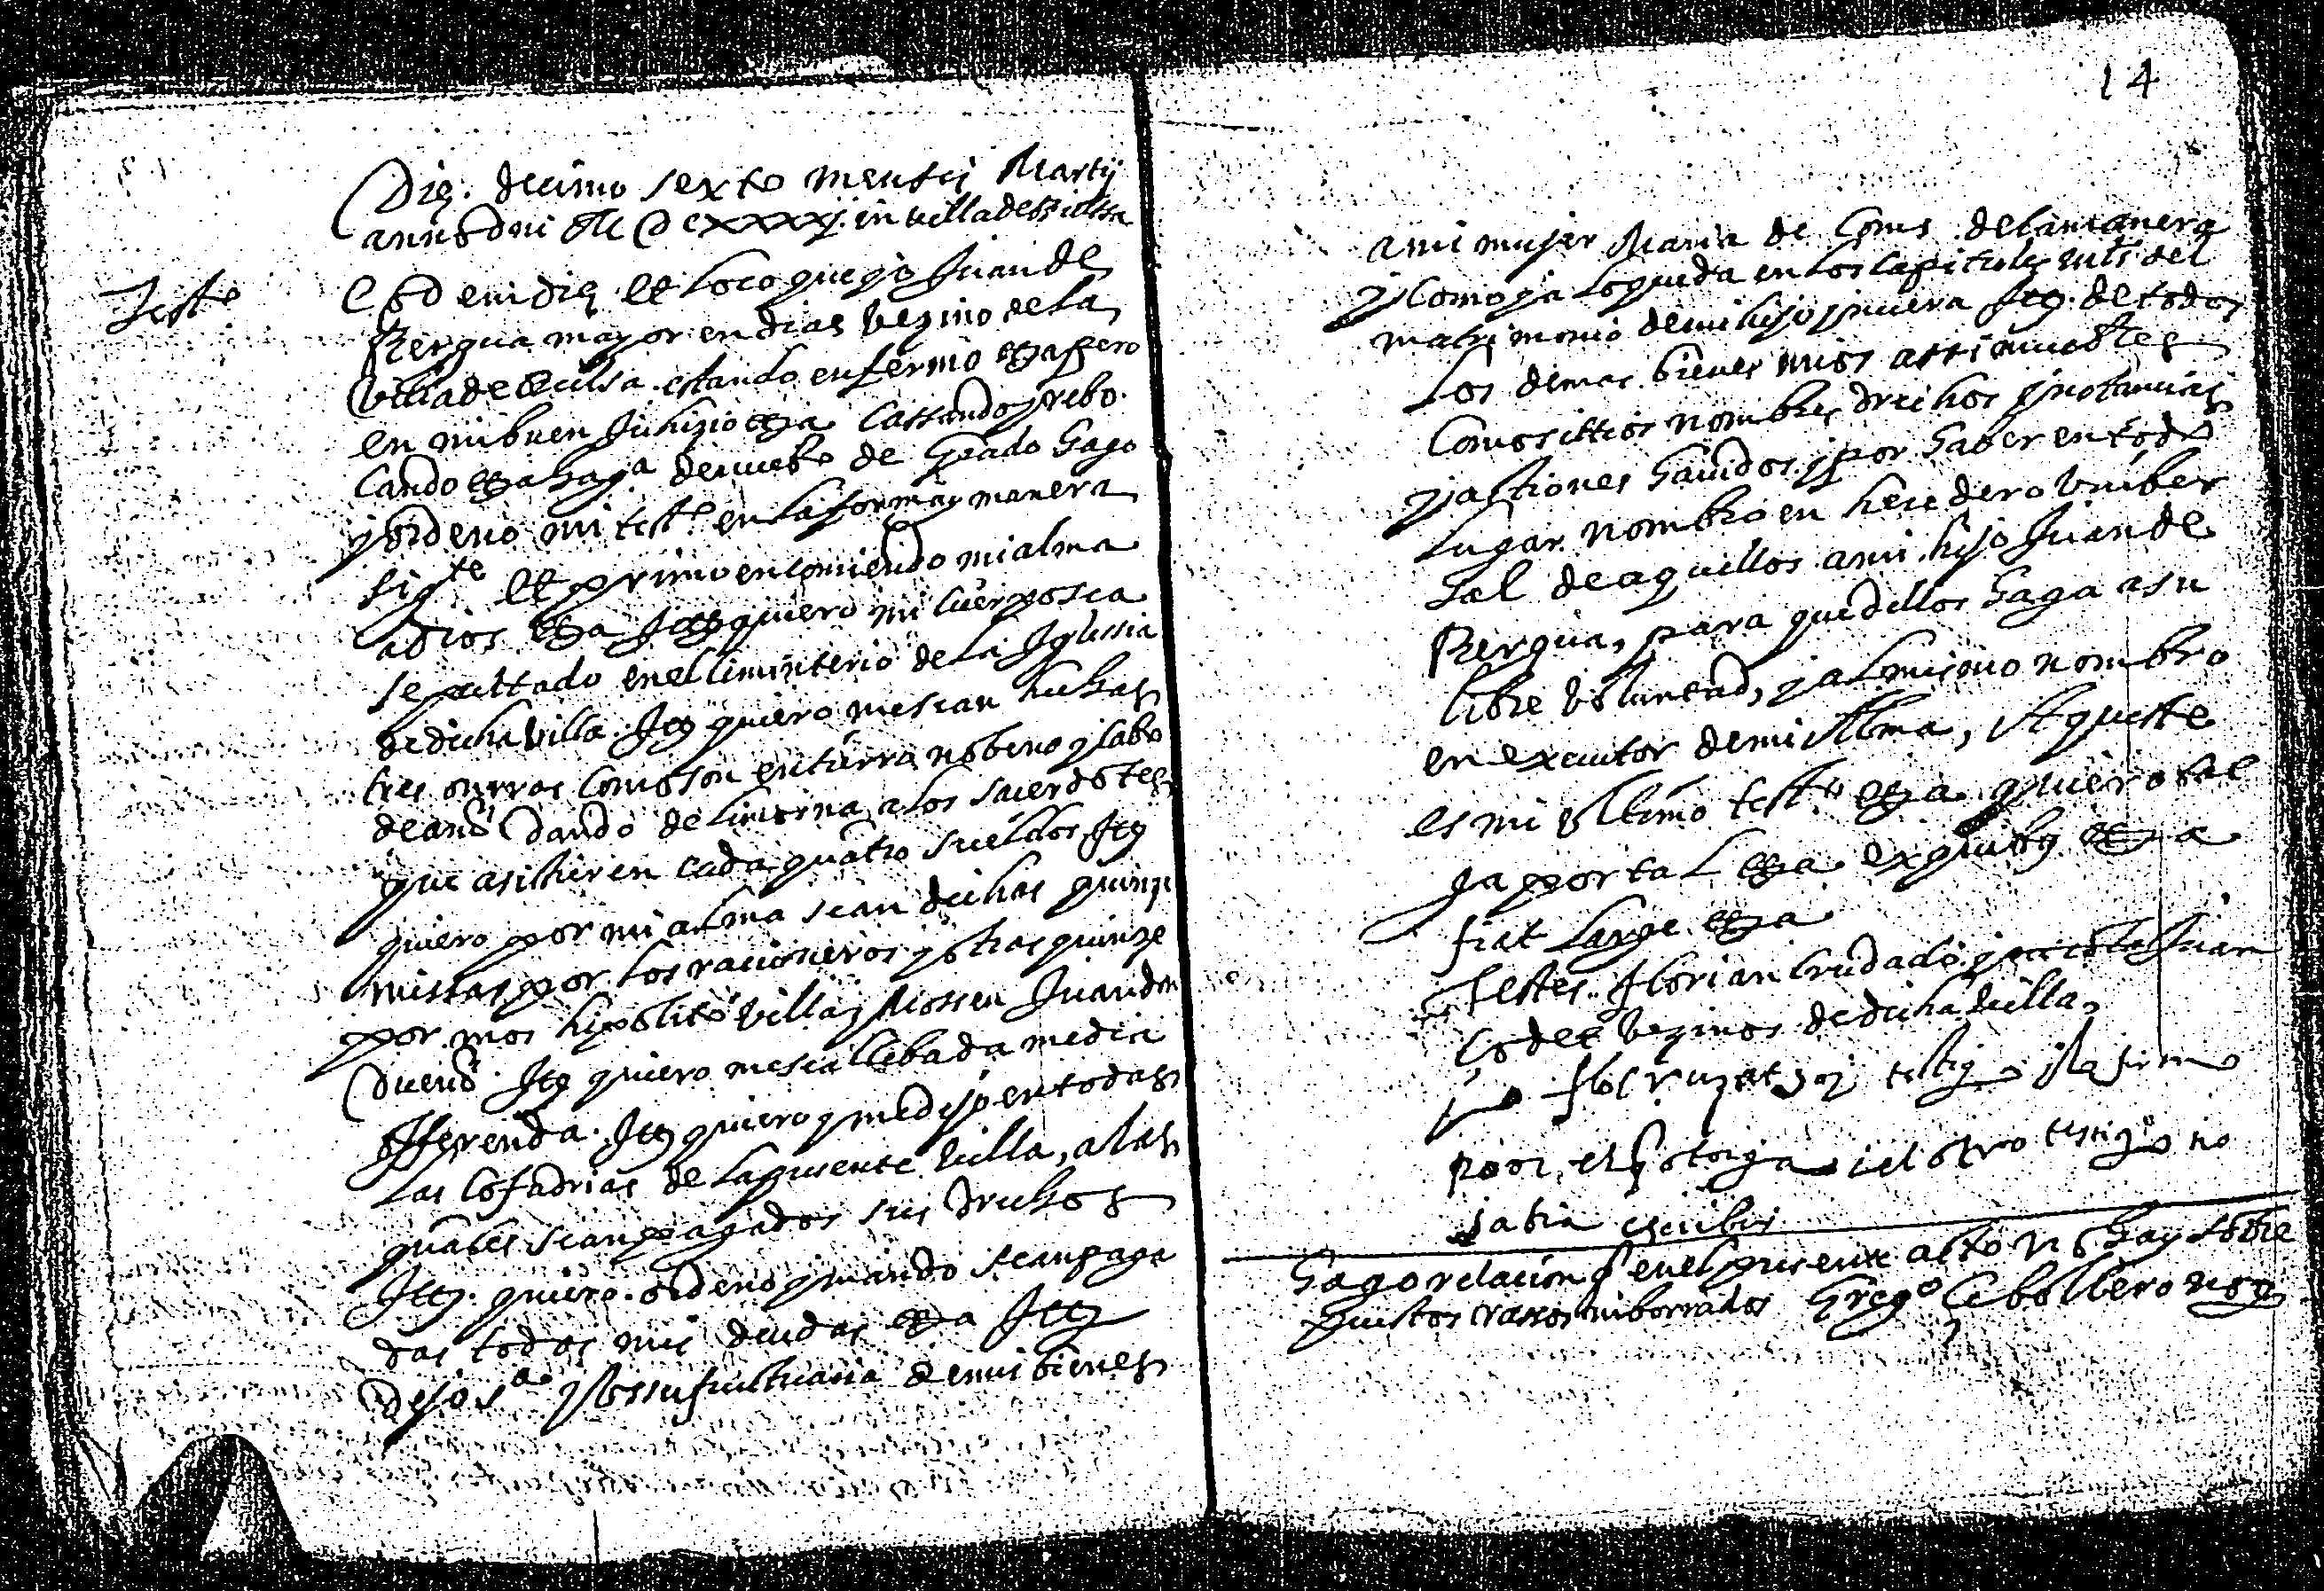 Die decimo sexto mensis Martij
anno dni M DCxxxxj in villa de Bielsa
Testº
Eodem die et loco que yo Juan de
Bergua mayor en dias vezino de la
Villa de Bielsa estando enfermo etza pero
en mi buen Juhizio etza Cassando y rebo
cando etza haga de nuebo de Grado Hago
y ordeno mi testº en la forma y manera
sigte et primo encomiendo mi alma
a dios etza Itt quiero mi cuerpo sea
sepultado en el Ciminterio de la Iglesia
de dicha villa. Itt quiero me sean hechas
tres onrras como son entierro nobeno y cabo
de año dando de limosna a los sacerdotes
que asistieren cada quatro sueldos Itt
quiero por mi alma sean dichas quinze
missas por los racioneros y otras quinze
por mos hipolito villa y Mossen Juan de
Dueso. Itt quiero me sea llebada media
offerenda. Itt quiero q me dejo en todas
las Cofadrias de la presente villa, a las
quales sean pagados sus drechos
Itt. quiero ordeno y mando sean paga
das todas mis deudas etza Itt
Dejo sª y ussufructuaria de mis bienes
14
a mi mujer Maria de Coms de la manera
y como ya lo queda en los capitules mts del
matrimonio de mi hijo y nuera Itt. de todos
los demas bienes mios assi muebles
Como sittios nombres drechos y instancias
y actiones Hauidos y por Haber en todo
lugar nombro en heredero vniber
sal de aquellos a mi hijo Juan de
Bergua, para que dellos Haga a su
libre voluntad, y al mismo nombro
en executor de mi Alma, Aqueste
es mi vltimo testº etza quiero bal
ga por tal etza ex quibus etza
fiat large etza
Testes Florian Cruzado Juan
vezinos de dicha villa,
yo flo cruzat soy testigo i la firmo
por el q otorga i el otro testigo no
sabia escribir
Hago relacion q en el presente acto no hay sobre
puestos rassos ni borrados Gregº Cebollero noz